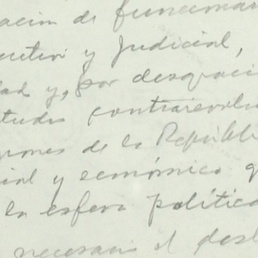 ación de funcionar
cutivo y Judicial,
dad y, por desgraci
tudes contrarrevolu
ones de la Repúbli
ial y económico q
la esfera política
necesario el desl